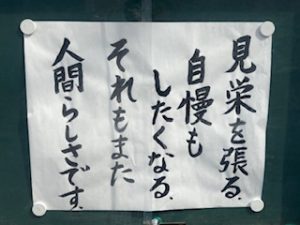 見栄を張る、
自慢も
したくなる、
それもまた
人間らしさです。